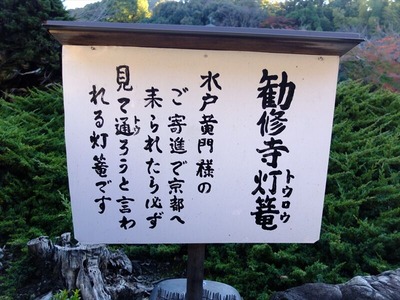 勧修寺灯篭
トウロウ
水戸黄門様の
ご寄進で京都へ
来られたら必ず
見て通ろうと言わ
トウ
れる灯篭です